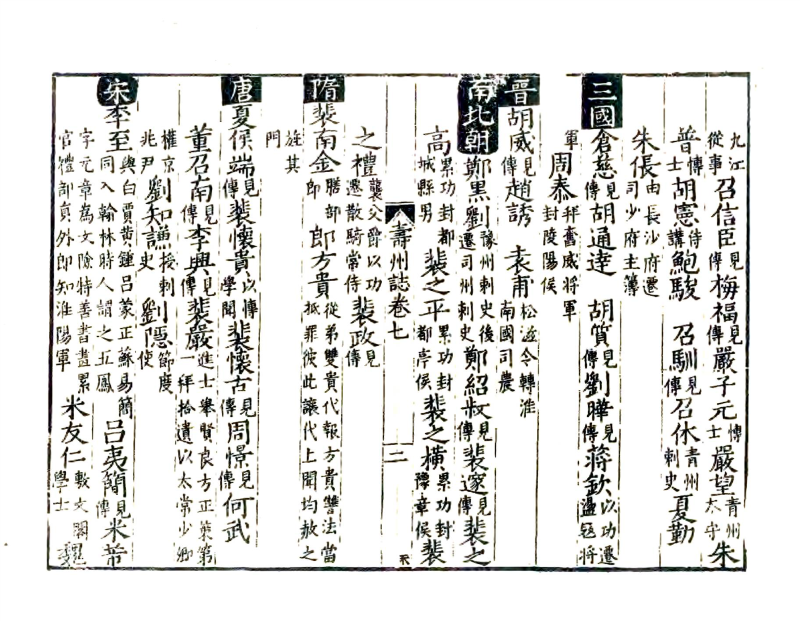 九江從事召信臣見傳梅福見傳嚴子元博士嚴望青州太守朱
普博士胡憲侍講鮑駿 召馴見傳召休青州刺史夏勤
朱倀由長沙府遷司少府主簿
三國倉慈見傳胡通達 胡質見傳劉曄見傳蔣欽以功遷盪冦將
軍周泰拜奮威將軍封陵陽侯
晉胡威見傳趙誘 袁甫松滋令轉淮南國司農
南北朝鄭黑劉豫州刺史後遷司州刺史鄭紹叔見傳裴邃見傳裴之
高累功封都城縣男裴之平累功封都亭侯裴之橫累功封豫章侯裴
之禮襲父爵以功遷散騎常侍裴政見傳
壽州誌卷七 二
隋裴南金膳部郎郎方貴從弟雙貴代報方貴讐法當抵罪彼此讓代上聞均赦之旌其
門
唐夏侯端見傳裴懷貴以博學聞裴懷古見傳周憬見傳何武
董召南見傳李興見傳裴嚴進士舉賢良方正策第一拜拾遺以太常少卿
權京兆尹劉知謙授刺史劉隱節度使
宋李至與白賈黄鍾呂蒙正蘇易簡同入翰林時人謂之五鳳呂夷簡見傳米芾
字元章為文險特善書畫累官禮部員外郎知淮陽軍米友仁敷文閣學士魏